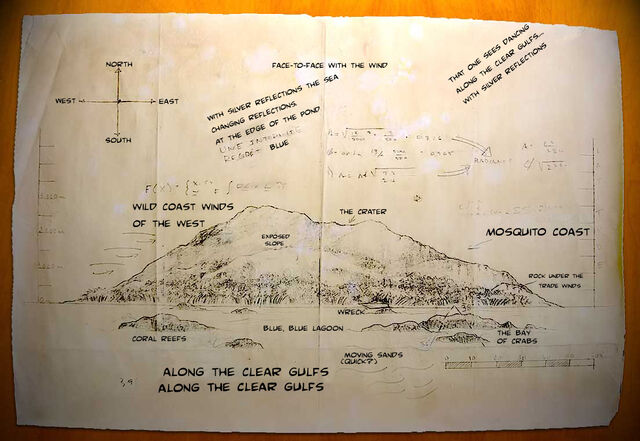 NORTH
WEST
EAST
SOUTH
FACE-TO-FACE WITH THE WIND
THAT ONE SEES DANCING
ALONG THE CLEAR GULFS...
WITH SILVER REFLECTIONS
WITH SILVER REFLECTIONS THE SEA
CHANGING REFLECTIONS
AT THE EDGE OF THE POND
BLUE
RADIANS
WILD COAST WINDS
OF THE WEST
THE CRATER
EXPOSED
SLOPE
MOSQUITO COAST
ROCK UNDER THE
TRADE WINDS
WRECK
CORAL REEFS
BLUE, BLUE LAGOON
THE BAY
OF CRABS
MOVING SANDS
(QUICK?)
ALONG THE CLEAR GULFS
ALONG THE CLEAR GULFS